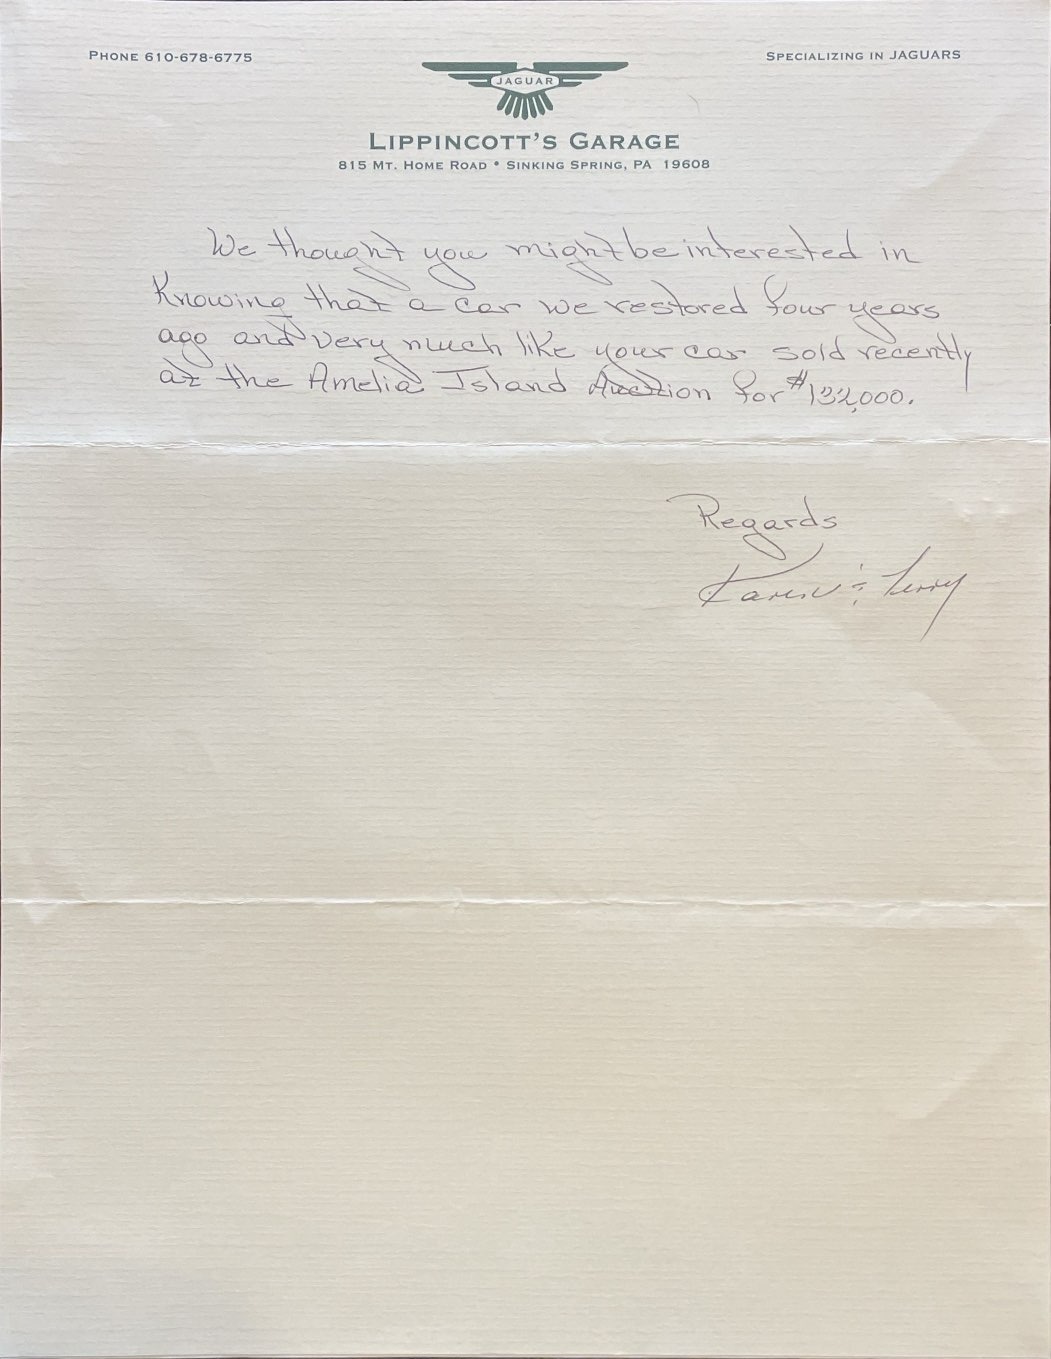 PHONE 610-678-6775
SPECIALIZING IN JAGUARS
JAGUAR
LIPPINCOTT'S GARAGE
815 MT. HOME ROAD • SINKING SPRING, PA 19608
We thought you might be interested in
Knowing that a car we restored four years
ago and very much like your car sold recently
at the Amelia Island Auction for $132,000.
Regards
Karen & Terry